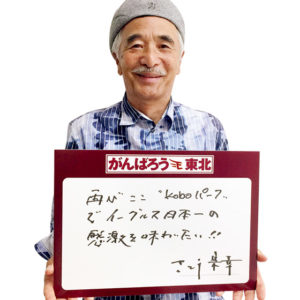 がんばろう東北
再びここ"Koboパーク"
でイーグルス日本一の
感激を味わいたい!!